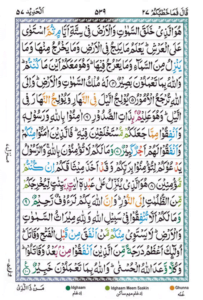 الحديد ٥٧ ٥٣٩ قال فما خطبكم ٢٧
هُوَ الَّذِىْ خَلَقَ السَّمٰوٰتِ وَالْاَرْضَ فِىْ سِتَّةِ اَيَّامٍ ثُمَّ اسْتَوٰى
عَلَى الْعَرْشِ يَعْلَمُ مَا يَلِجُ فِى الْاَرْضِ وَمَا يَخْرُجُ مِنْهَا وَمَا
يَنْزِلُ مِنَ السَّمَآءِ وَمَا يَعْرُجُ فِيْهَا وَهُوَ مَعَكُمْ اَيْنَ مَا كُنْتُمْ
وَاللّٰهُ بِمَا تَعْمَلُوْنَ بَصِيْرٌ لَهٗ مُلْكُ السَّمٰوٰتِ وَالْاَرْضِ وَاِلَى
اللّٰهِ تُرْجَعُ الْاُمُوْرُ يُوْلِجُ الَّيْلَ فِى النَّهَارِ وَيُوْلِجُ النَّهَارَ فِى
الَّيْلِ وَهُوَ عَلِيْمٌ بِذَاتِ الصُّدُوْرِ اٰمِنُوْا بِاللّٰهِ وَرَسُوْلِهٖ
وَاَنْفِقُوْا مِمَّا جَعَلَكُمْ مُّسْتَخْلَفِيْنَ فِيْهِ فَالَّذِيْنَ اٰمَنُوْا مِنْكُمْ
وَاَنْفَقُوْا لَهُمْ اَجْرٌ كَبِيْرٌ وَمَا لَكُمْ لَا تُؤْمِنُوْنَ بِاللّٰهِ وَالرَّسُوْلُ
يَدْعُوْكُمْ لِتُؤْمِنُوْا بِرَبِّكُمْ وَقَدْ اَخَذَ مِيْثَاقَكُمْ اِنْ كُنْتُمْ
مُّؤْمِنِيْنَ هُوَ الَّذِىْ يُنَزِّلُ عَلٰى عَبْدِهٖۤ اٰيٰتٍ بَيِّنٰتٍ لِّيُخْرِجَكُمْ
مِّنَ الظُّلُمٰتِ اِلَى النُّوْرِ وَاِنَّ اللّٰهَ بِكُمْ لَرَءُوْفٌ رَّحِيْمٌ
وَمَا لَكُمْ اَلَّا تُنْفِقُوْا فِىْ سَبِيْلِ اللّٰهِ وَلِلّٰهِ مِيْرَاثُ السَّمٰوٰتِ
وَالْاَرْضِ لَا يَسْتَوِىْ مِنْكُمْ مَّنْ اَنْفَقَ مِنْ قَبْلِ الْفَتْحِ وَقَاتَلَ
اُولٰٓئِكَ اَعْظَمُ دَرَجَةً مِّنَ الَّذِيْنَ اَنْفَقُوْا مِنْۢ بَعْدُ وَقَاتَلُوْا
وَكُلًّا وَّعَدَ اللّٰهُ الْحُسْنٰى وَاللّٰهُ بِمَا تَعْمَلُوْنَ خَبِيْرٌ
Idghaam Idghaam Meem Saakin Ghunna